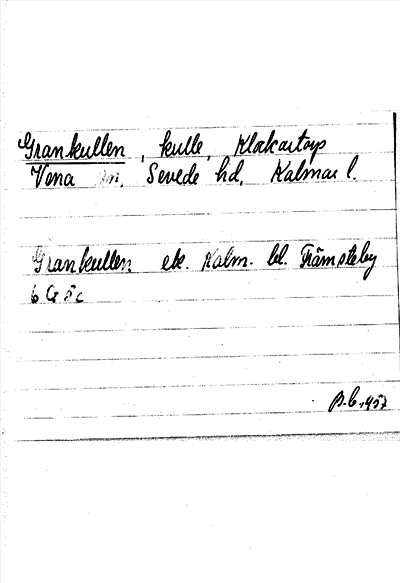 Grankullen, kulle, Klakartorp
Vena sn, Sevede hd, Kalmar l.
Grankullen ek. Kalm. bl. Främsteby
6 G 5 c
1957